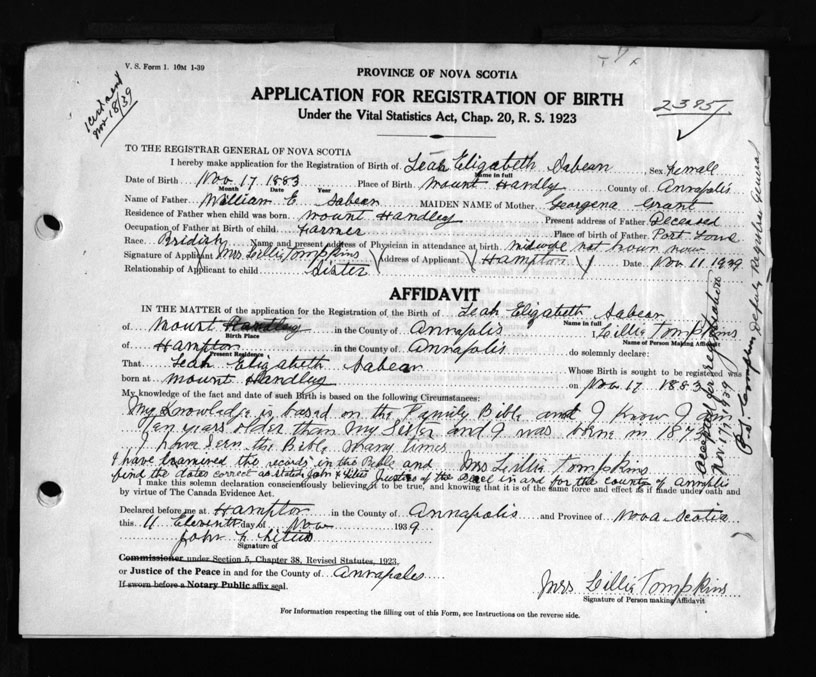 V. S. Form 1. 10M 1-39
PROVINCE OF NOVA SCOTIA
APPLICATION FOR REGISTRATION OF BIRTH
Under the Vital Statistics Act, Chap. 20, R. S. 1923
Nov 18/39
23951
TO THE REGISTRAR GENERAL OF NOVA SCOTIA
I hereby make application for the Registration of Birth of Leah Elizabeth Sabean Sex femall
Name in full
Date of Birth Nov 17 1883 Place of Birth Mount Handly County of Annapolis
Month Date Year
Name of Father William E Sabean MAIDEN NAME of Mother Georgena Grant
Residence of Father when child was born mount Handley Present address of Father Deceased
Occupation of Father at Birth of child Farmer Place of birth of Father Port
Race Bridish Name and present address of Physician in attendance at birth midwife not nown now
Signature of Applicant Mrs Lillie Tompkins Address of Applicant Hampton Date Nov 11 1939
Relationship of Applicant to child Sister
AFFIDAVIT
IN THE MATTER of the application for the Registration of the Birth of Leah Elizabeth Sabean
Name in full
of Mount Handley in the County of Annapolis Lillie Tompkins
Birth Place Name of Person Making Affidavit
of Hampton in the County of Annapolis do solemnly declare:
Present Residence
That Leah Elizabeth Sabean Whose Birth is sought to be registered was
born at Mount Handley on Nov 17 1883
My knowledge of the fact and date of such Birth is based on the following Circumstances:
My Knowledge is based on the Family Bible and I know I am
Ten years older than My Sister and I was borne in 1873
I have seen the Bible many times
I have examined the records in the Bible and Mrs Lillie Tompkins
find the dates correct as stated John Titus Justice of the Peace in and for the county of Annapolis
I make this solemn declaration conscientiously believing it to be true, and knowing that it is of the same force and effect as if made under oath and
by virtue of The Canada Evidence Act.
Declared before me at Hampton in the County of Annapolis and Province of Nova Scotia
this 11 Eleventh day of Nov 1939
John Titus
Signature of
Commissioner under Section 5, Chapter 38, Revised Statutes, 1923,
or Justice of the Peace in and for the County of Annapoles
If sworn before a Notary Public affix seal.
Mrs Lillie Tompkins
Signature of Person making Affidavit
For Information respecting the filling out of this Form, see Instructions on the reverse side.
accepted for registration
Nov 17, 1939
Deputy Registrar General